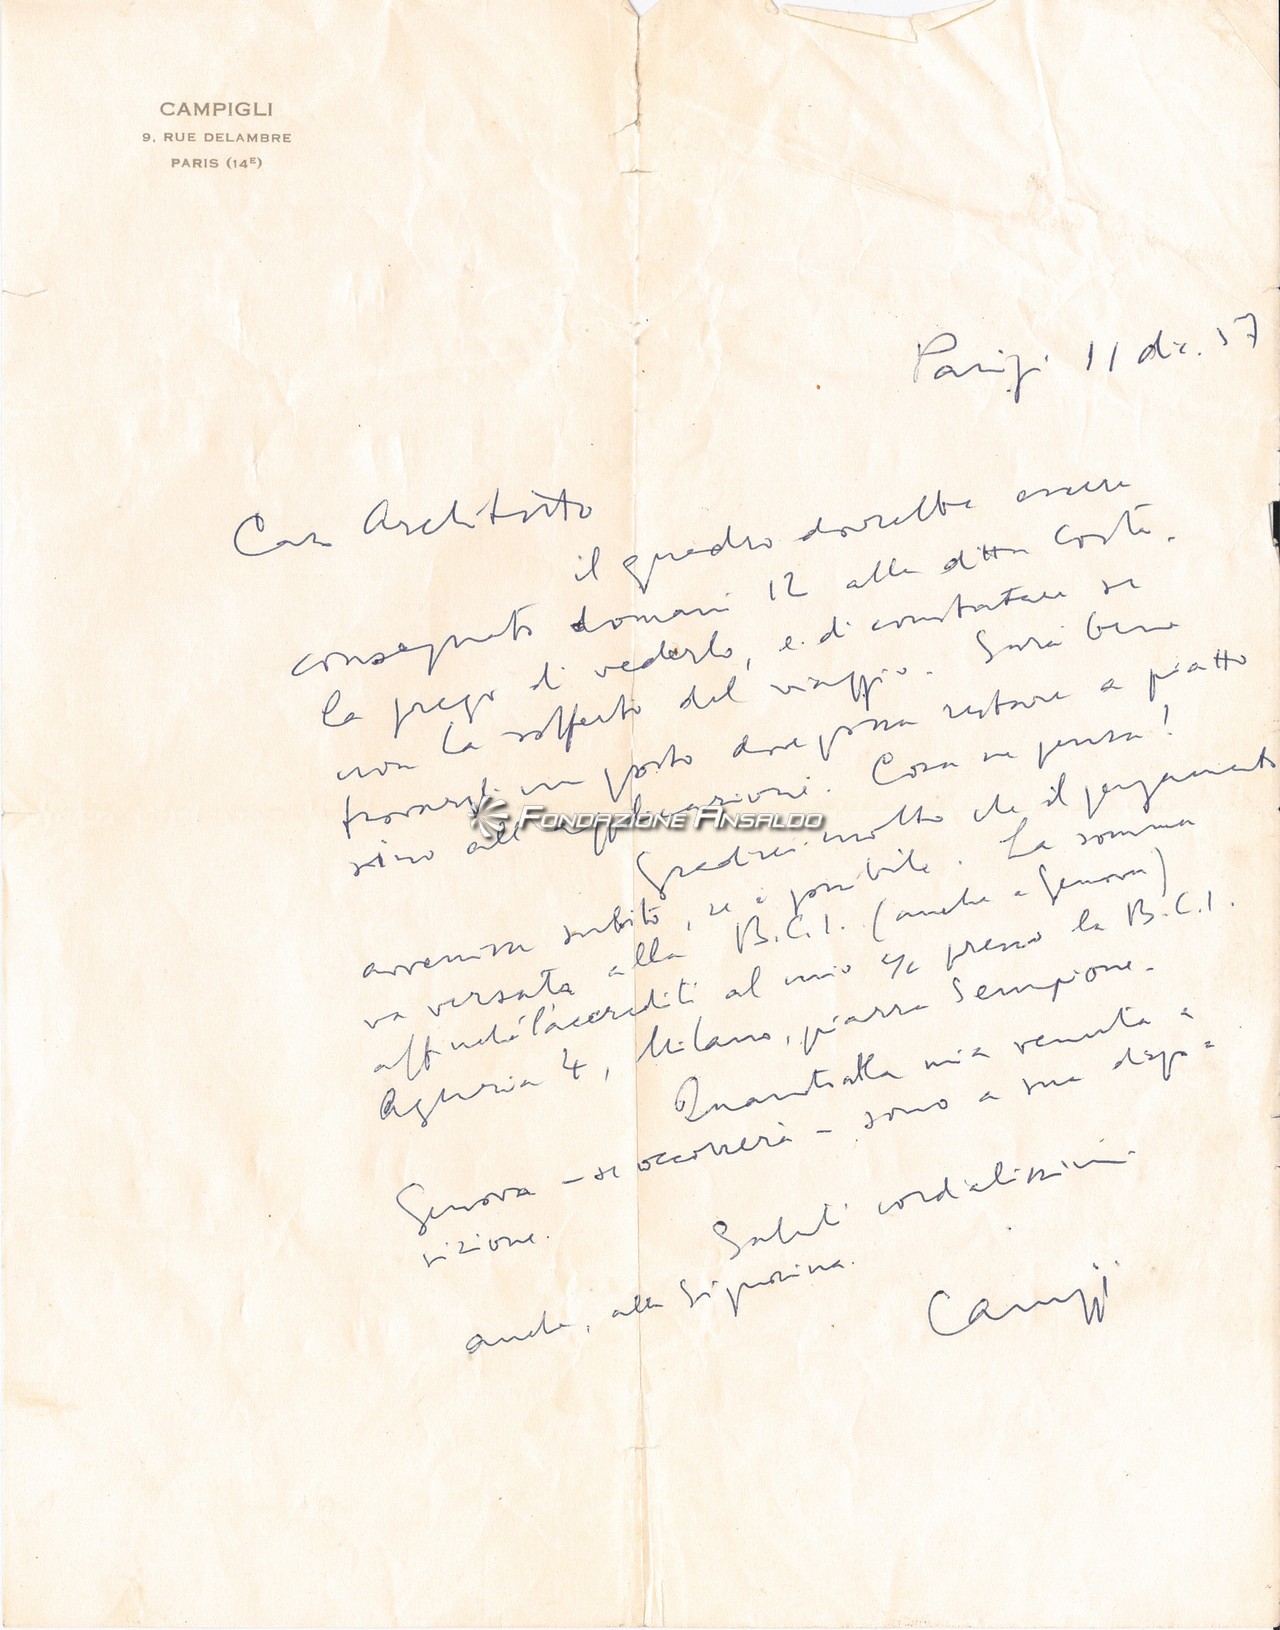 CAMPIGLI
9, RUE DELAMBRE
PARIS (14E)
Parigi 11 dic. 57
Caro Architetto
il quadro dovrebbe essere
consegnato domani 12 alla ditta Costa.
La prego di vederlo, e di constatare se
non ha sofferto del viaggio. Sarà bene
trovargli un posto dove possa restare a piatto
sino all'applicazione. Cosa ne pensa?
FONDAZIONE ANSALDO
Gradirei molto che il pagamento
avvenisse subito, se è possibile. La somma
va versata alla B.C.I. (anche a Genova)
affinchè l'accrediti al mio c/c presso la B.C.I.
Agenzia 4, Milano, piazza Sempione.
Quanto alla mia venuta a
Genova – se occorrerà – sono a sua dispo=
sizione.
Saluti cordialissimi
anche, alla Signorina.
Campigli